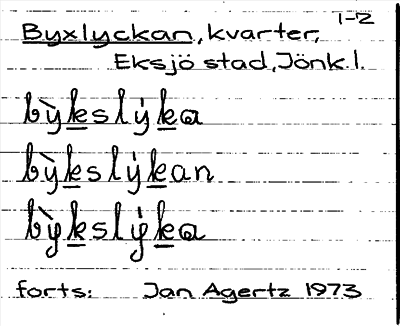 1-2
Byxlyckan, kvarter,
Eksjö stad, Jönk.l.
bỳkslýka
bỳkslýkan
bỳkslýka
forts: Jan Agertz 1973